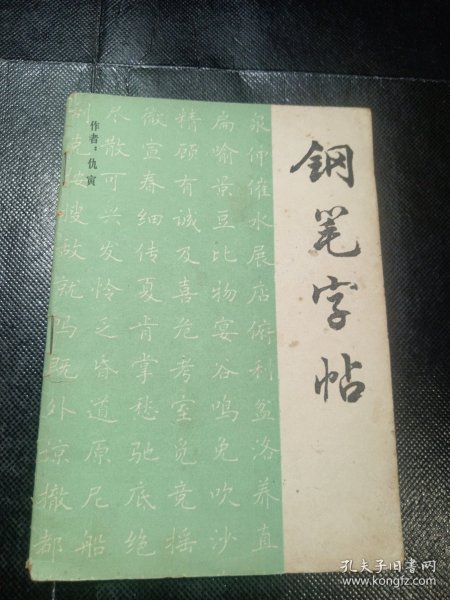 钢笔字帖
作者：仇寅
泉佈催水展店俯利盆洛养直
扁喻景豆比物宴谷鸣免吹沙
精顾有诚及喜危考室觅竞摇
微宣春细传夏肯掌愁驰底绝
尽散可兴发怜乏昏道原尼船
刻克按嫂故就吗既外掠撤都
孔夫子旧书网
www.kongfz.com